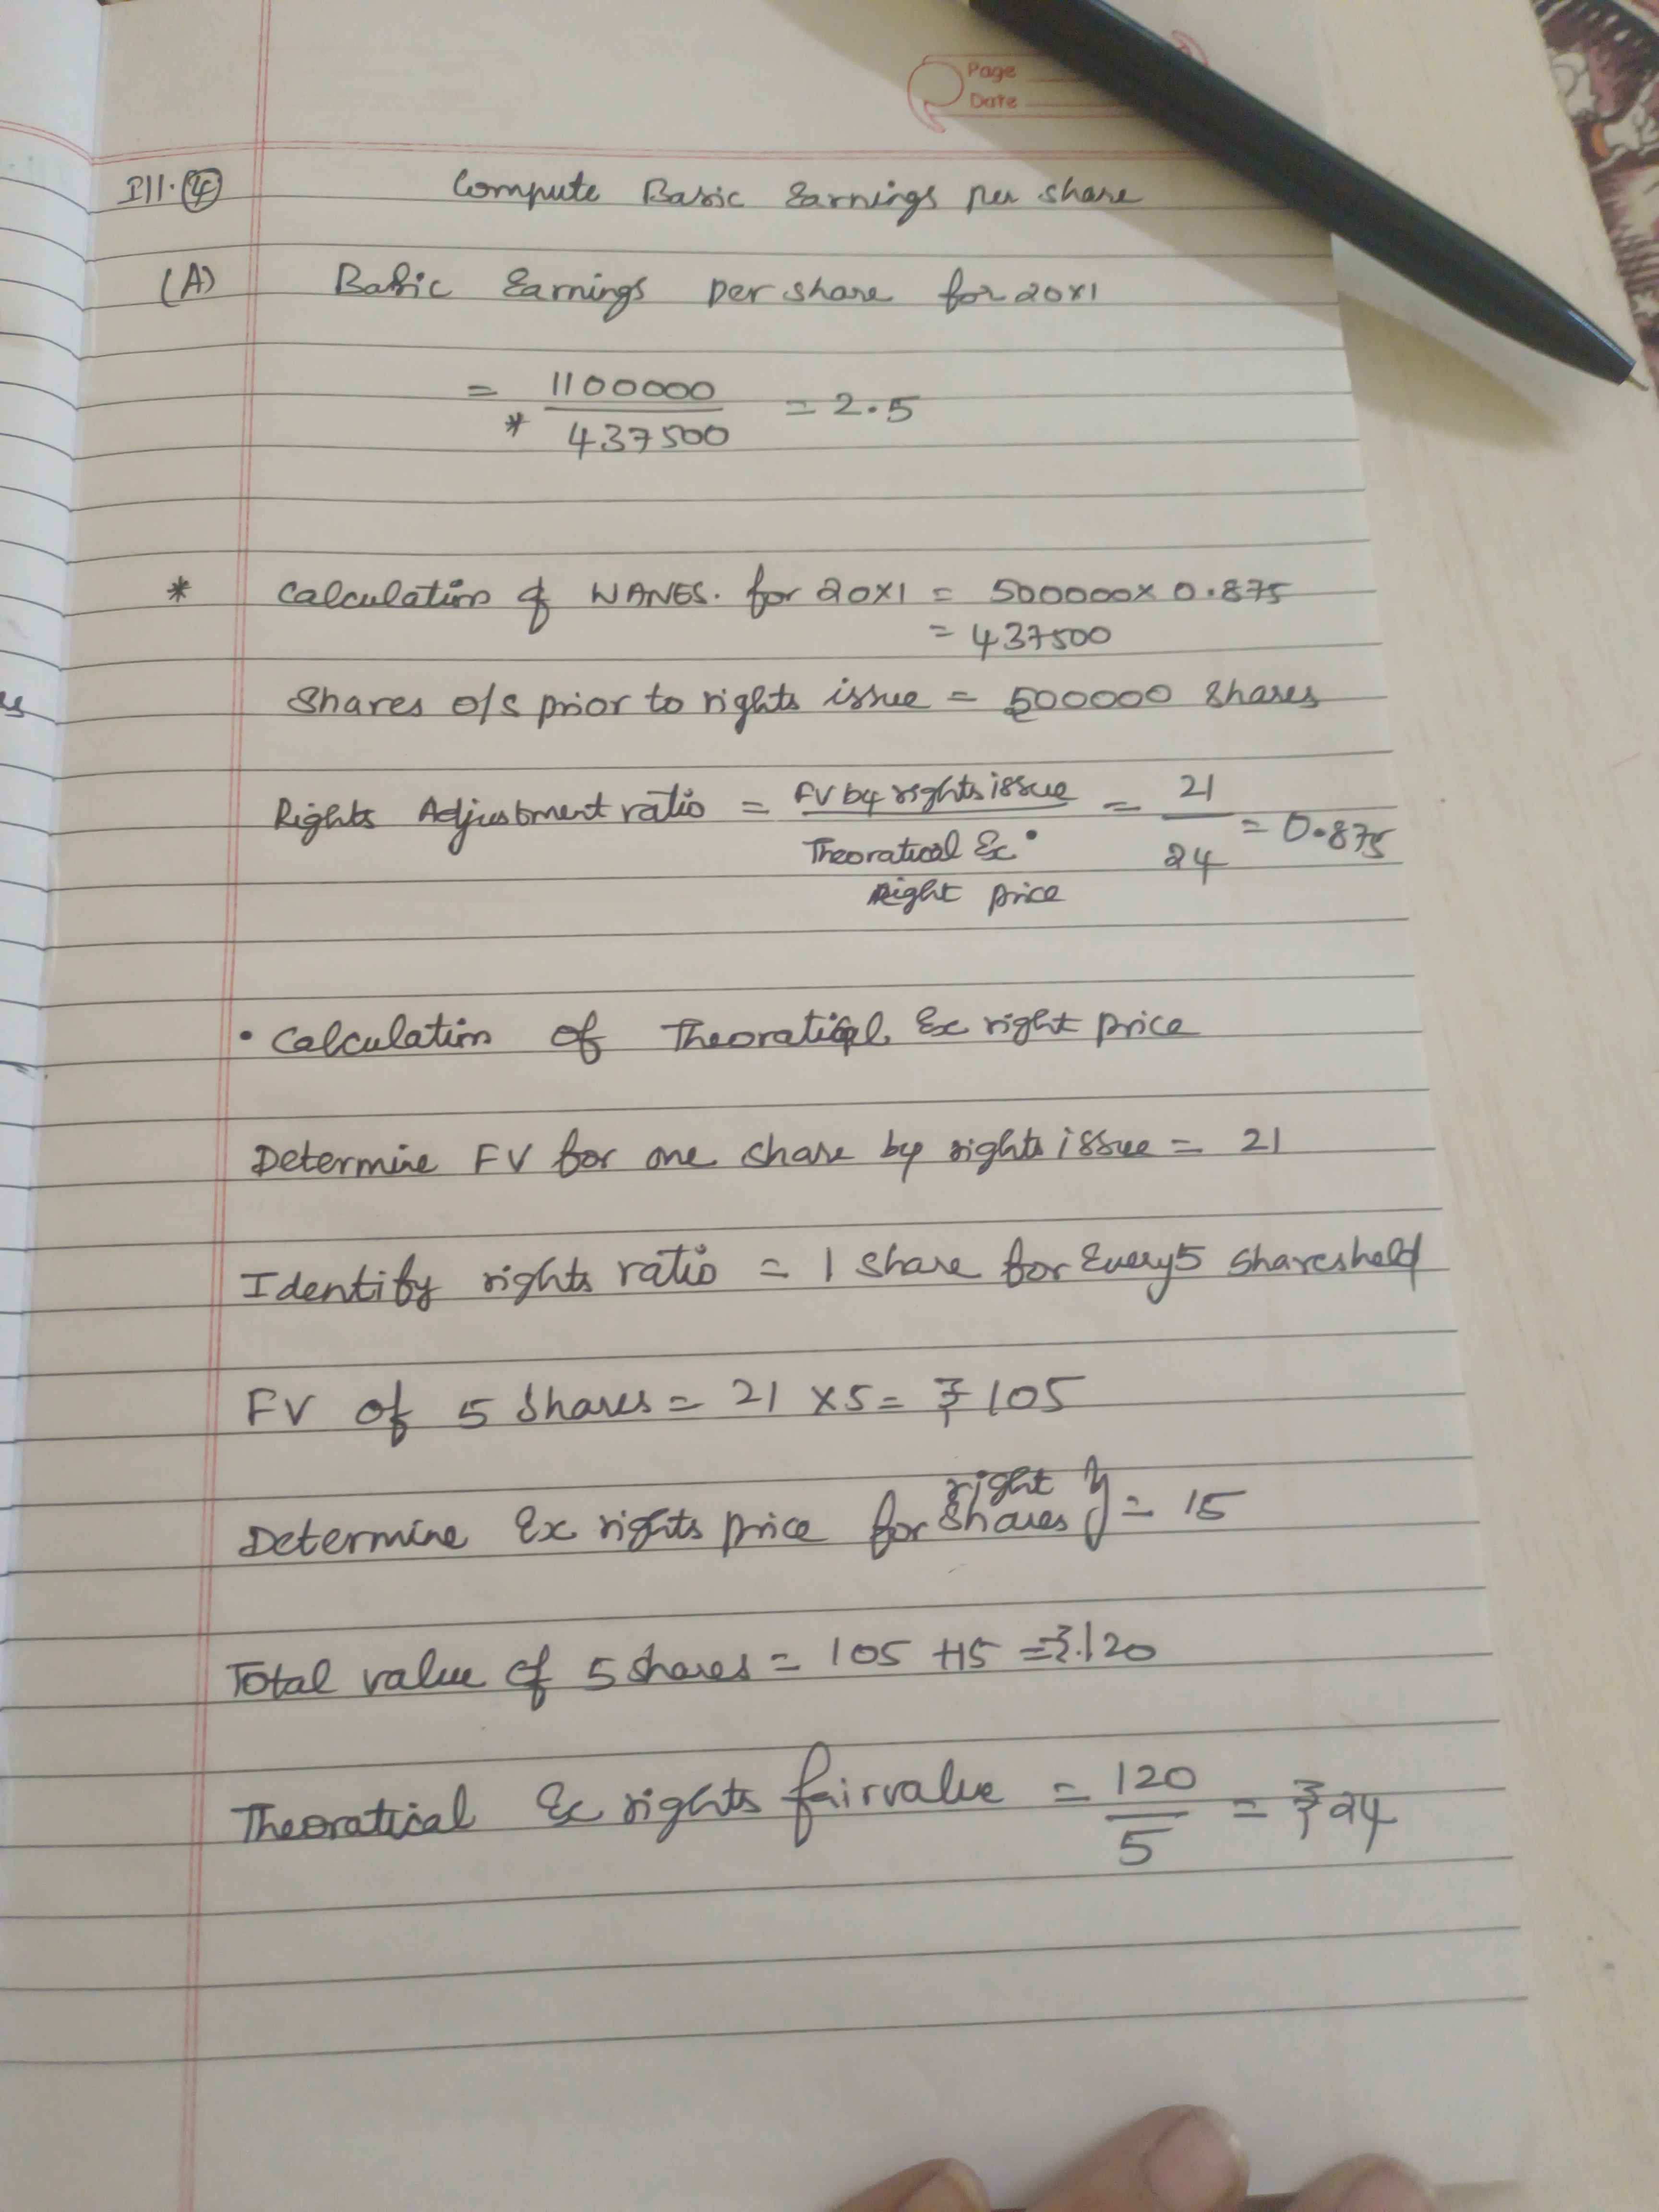 Page
Date
Ill. 4 Compute Basic Earnings per share
(A) Basic Earnings per share for 20X1
= 1100000
* 437500 = 2.5
* Calculation of WANES. for 20X1 = 500000 x 0.875
= 437500
Shares o/s prior to rights issue = 500000 shares
Rights Adjustment ratio = FV by rights issue = 21
Theoratical Ex• 24 = 0.875
right price
• Calculation of Theoratical Ex right price
Determine FV for one share by rights issue = 21
Identify rights ratio = 1 share for Every 5 shares held
FV of 5 Shares = 21 x 5 = ₹ 105
Determine Ex rights price for right shares } = 15
Total value of 5 shares = 105 + 15 = ₹.120
Theoratical Ex rights fair value = 120
5 = ₹ 24